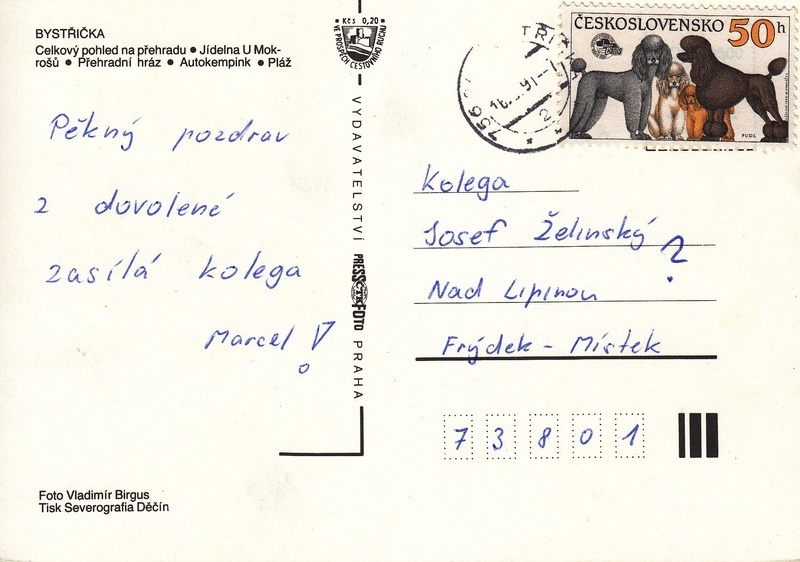 BYSTŘIČKA
Celkový pohled na přehradu ● Jídelna U Mok-
rošů ● Přehradní hráz ● Autokempink ● Pláž
Pěkný pozdrav
z dovolené
zasílá kolega
Marcel !
Foto Vladimír Birgus
Tisk Severografia Děčín
Kčs 0,20
VE PROSPĚCH CESTOVNÍHO RUCHU
VYDAVATELSTVÍ PRESSFOTO PRAHA
ČTK
ČESKOSLOVENSKO 50h
PUDL
756
16. 91-1
2
Kolega
Josef Želinský ?
Nad Lipinou
Frýdek - Místek
73801